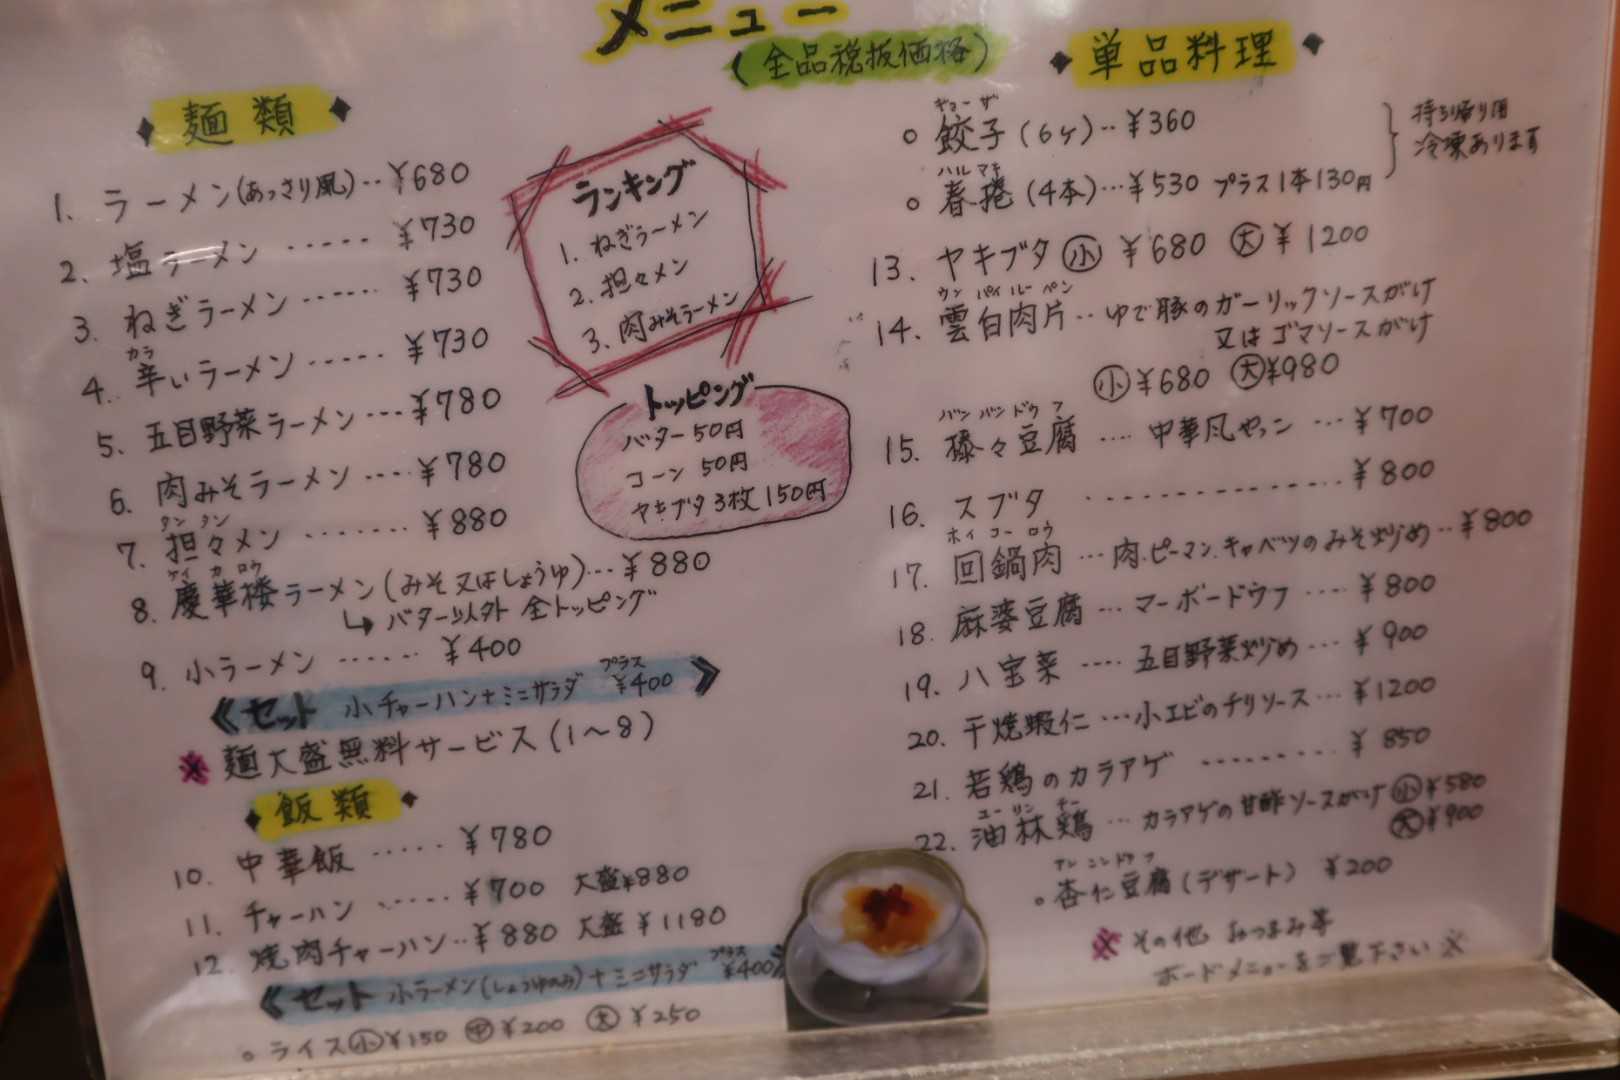 メニュー
(全品税抜価格)
麺類
1. ラーメン(あっさり風)‥¥680
2. 塩ラーメン ‥‥‥ ¥730
3. ねぎラーメン ‥‥‥ ¥730
カラ
4. 辛いラーメン ‥‥‥ ¥730
5. 五目野菜ラーメン ‥‥ ¥780
6. 肉みそラーメン ‥‥ ¥780
タン タン
7. 担々メン ‥‥‥‥ ¥880
ケイ カ ロウ
8. 慶華楼ラーメン(みそ又はしょうゆ)‥¥880
↳ バター以外 全トッピング
9. 小ラーメン ‥‥‥ ¥400
《セット 小チャーハン+ミニサラダ プラス ¥400 》
※ 麺大盛無料サービス(1〜8)
飯類
10. 中華飯 ‥‥‥ ¥780
11. チャーハン ‥‥‥ ¥700 大盛¥880
12. 焼肉チャーハン‥¥880 大盛 ¥1180
《セット 小ラーメン(しょうゆのみ)+ミニサラダ プラス ¥400》
○ ライス ㊛¥150 ㊥¥200 大 ¥250
ランキング
1. ねぎラーメン
2. 担々メン
3. 肉みそラーメン
トッピング
バター 50円
コーン 50円
ヤキブタ 3枚 150円
単品料理
ギョー ザ
○ 餃子(6ケ)‥¥360
ハル マキ
○ 春捲(4本)‥¥530 プラス1本130円
持ち帰り用
冷凍あります
13. ヤキブタ 小 ¥680 大 ¥1200
ウン パイ ルー ペン
14. 雲白肉片‥ゆで豚のガーリックソースがけ
又はゴマソースがけ
小 ¥680 大 ¥980
バン バン ドウ フ
15. 棒々豆腐 ‥‥ 中華風やっこ ‥‥ ¥700
16. スブタ ‥‥‥‥‥‥‥ ¥800
ホイ コー ロウ
17. 回鍋肉 ‥‥ 肉.ピーマン.キャベツのみそ炒め‥¥800
18. 麻婆豆腐 ‥‥ マーボードウフ ‥‥ ¥800
19. 八宝菜 ‥‥ 五目野菜炒め ‥‥ ¥900
20. 干焼蝦仁 ‥‥小エビのチリソース‥‥ ¥1200
21. 若鶏のカラアゲ ‥‥‥‥‥ ¥850
ユー リン チー
22. 油林鶏 ‥‥ カラアゲの甘酢ソースがけ 小¥580
大¥900
アン ニン ドウ フ
○ 杏仁豆腐(デザート) ¥200
※ その他 おつまみ等
ボードメニューをご覧下さい ※